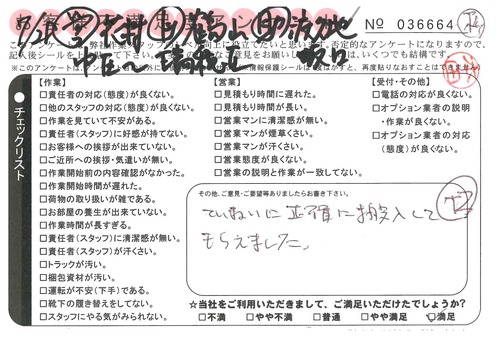 № 036664
このアンケートは、弊社作業
記入後シールを
※このアンケートは、
情報保護シールは
【作業】
□責任者の対応(態度)が良くない。
□他のスタッフの対応(態度)が良くない。
□作業を見ていて不安がある。
□責任者(スタッフ)に好感が持てない。
□お客様への挨拶が出来ていない。
□ご近所への挨拶・気遣いが無い。
□作業開始前の内容確認がなかった。
□作業開始時間が遅れた。
□荷物の取り扱いが雑である。
□お部屋の養生が出来ていない。
□作業時間が長すぎる。
□責任者(スタッフ)に清潔感が無い。
□責任者(スタッフ)が汗くさい。
□トラックが汚い。
□梱包資材が汚い。
□運転が不安(下手)である。
□靴下の履き替えをしてない。
□スタッフにやる気がみられない。
【営業】
□見積もり時間に遅れた。
□見積もり時間が長い。
□営業マンに清潔感が無い。
□営業マンが煙草くさい。
□営業マンが汗くさい。
□営業態度が良くない。
□営業の説明と作業が一致してない。
【受付・その他】
□電話の対応が良くない。
□オプション業者の説明
・作業が良くない。
□オプション業者の対応
(態度)が良くない。
チェックリスト
その他、ご意見・ご要望等ありましたらお書き下さい。
ていねいに 荷物に搬入して
もらえました。
☆当社をご利用いただきまして、ご満足いただけたでしょうか?
□不満 □やや不満 □普通 □やや満足 ☑満足